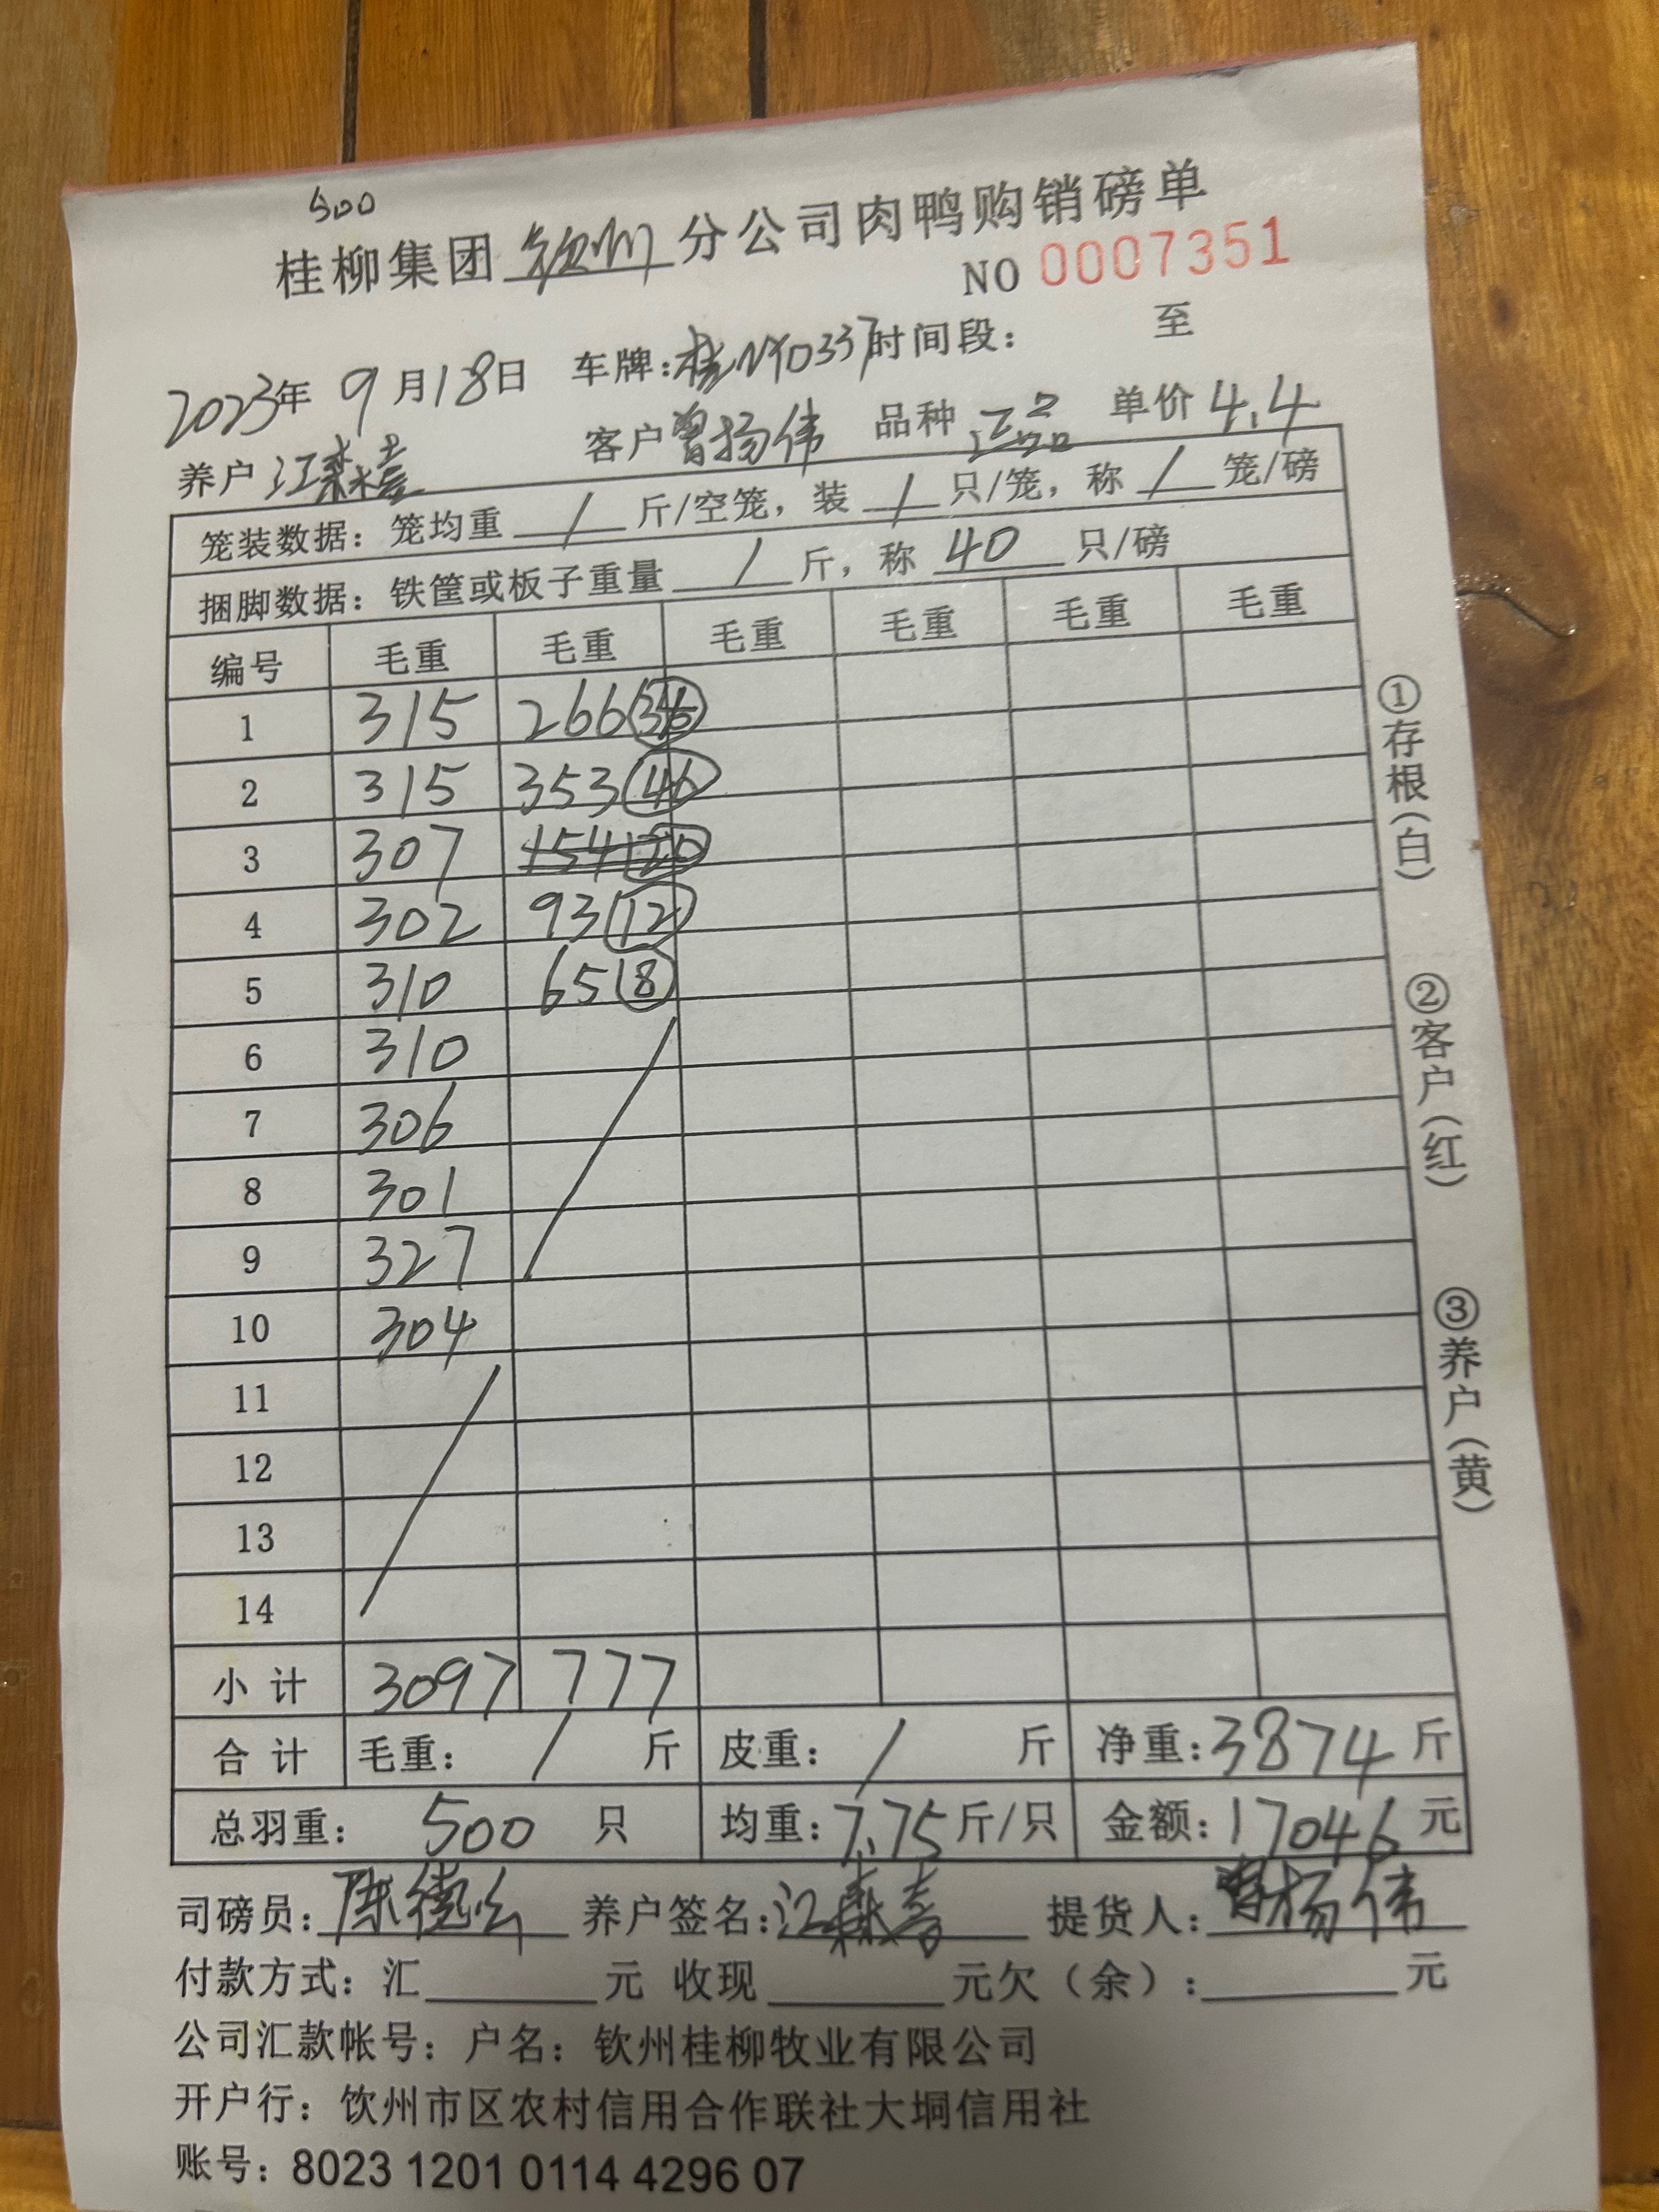 500
桂柳集团钦州分公司肉鸭购销磅单
NO 0007351
2023年 9月18日 车牌:桂NY0337时间段: 至
养户 江森喜 客户 曾扬伟 品种 正品 单价 4.4
笼装数据: 笼均重 / 斤/空笼, 装 / 只/笼, 称 / 笼/磅
捆脚数据: 铁筐或板子重量 / 斤, 称 40 只/磅
编号 毛重 毛重 毛重 毛重 毛重 毛重
1 315 266(34)
2 315 353(46)
3 307 154(20)
4 302 93(12)
5 310 65(8)
6 310
7 306
8 301
9 327
10 304
11
12
13
14
小计 3097 777
合计 毛重: / 斤 皮重: / 斤 净重:3874斤
总羽重: 500 只 均重:7.75斤/只 金额:17046元
司磅员: 养户签名:江森喜 提货人:曾扬伟
付款方式: 汇 元 收现 元欠(余): 元
公司汇款帐号: 户名: 钦州桂柳牧业有限公司
开户行: 钦州市区农村信用合作联社大垌信用社
账号: 8023 1201 0114 4296 07
①存根(白)
②客户(红)
③养户(黄)